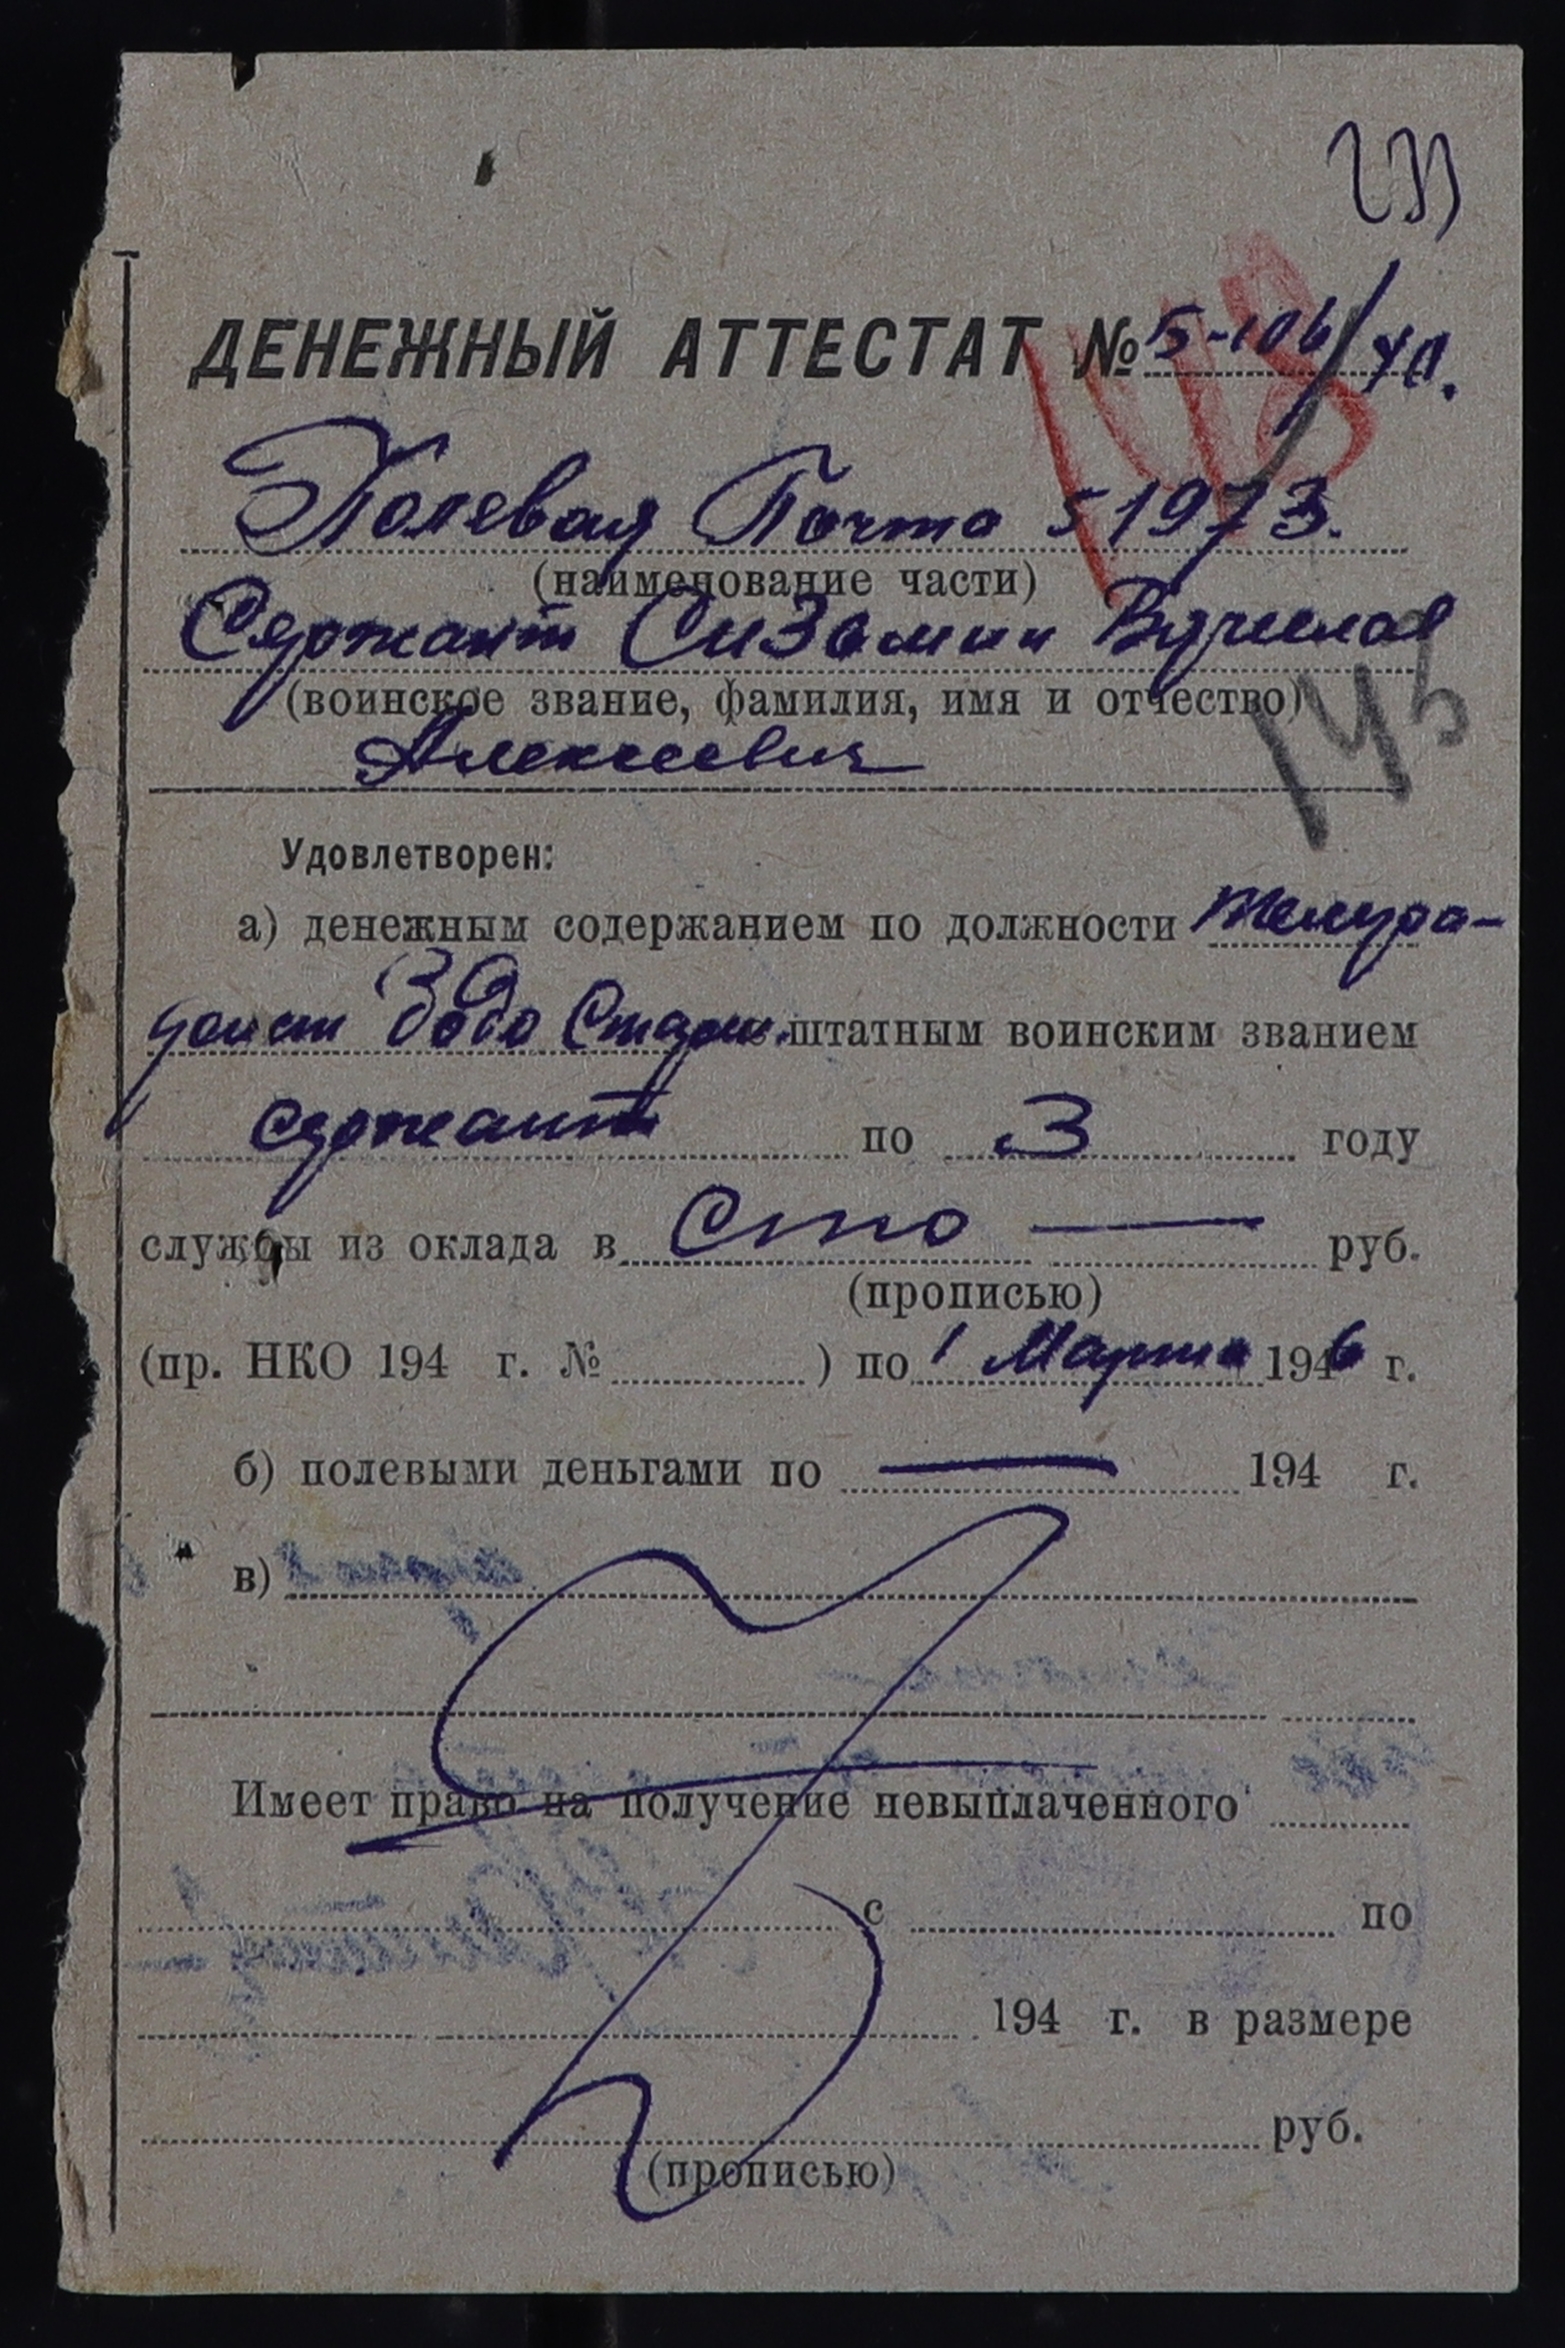 233
ДЕНЕЖНЫЙ АТТЕСТАТ № Б-106/
Полевая Почта 51973.
(наименование части)
Сержант Сизомин
(воинское звание, фамилия, имя и отчество)
143
Алексеевич
Удовлетворен:
а) денежным содержанием по должности телегра-
Бодо Старш. штатным воинским званием
сержант по 3 году
службы из оклада в Сто — руб.
(прописью)
(пр. НКО 194 г. № ) по 1 Марта 1946 г.
б) полевыми деньгами по — 194 г.
в)
Имеет право на получение невыплаченного
с по
194 г. в размере
руб.
(прописью)